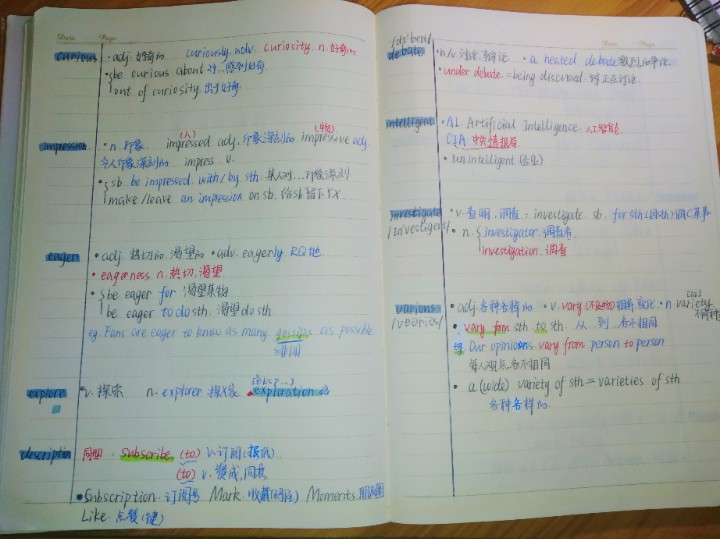 Date Page
curious · adj. 好奇的. curiously. adv. curiosity. n. 好奇心
· be curious about 对...感到好奇.
out of curiosity. 出于好奇.
impression · n. 印象. impressed adj. 印象深刻的 impressive adj
(人) (事物)
令人印象深刻的 impress. v.
· sb be impressed with/by sth. 某人对...印象深刻.
make/leave an impression on sb. 给sb留下
eager · adj. 热切的. 渴望的 · adv. eagerly.
· eagerness n. 热切, 渴望
· be eager for 渴望某物
be eager to do sth. 渴望do sth
eg. Fans are eager to know as many gossips as possible
explore v. 探索 n. explorer 探险家 · expluration
description · subscribe (to) v. 订阅(报纸).
(to) v. 赞成, 同意.
· Subscription 订阅 Mark. 收藏 Moments. 朋友圈
Like 点赞(键)
Date Page
debate · n./v. 讨论. 辩论. · a heated debate 激烈的争论.
· under debate. = being discussed. 正在讨论.
intelligent · AI. Artificial Intelligence. 人工智能
CIA. 中央情报局
· unintelligent
investigate · v. 查明, 调查. · investigate sb. for sth
· n. investigator. 调查者.
investigation. 调查
various · adj. 各种各样的 · v. vary 变化. · n variety
· vary from sth to sth. 从...到...各不相同
Our opinions vary from person to person
每人观点各不相同
· a (wide) variety of sth = varieties of sth.
各种各样的.